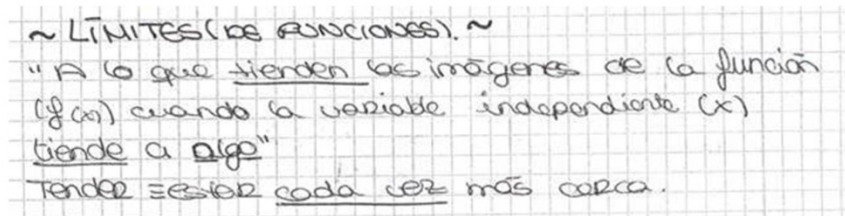 ~ LÍMITES (DE FUNCIONES). ~
"A lo que tienden las imágenes de la función
(f(x)) cuando la variable independiente (x)
tiende a algo"
Tender ≡ estar cada vez más cerca.